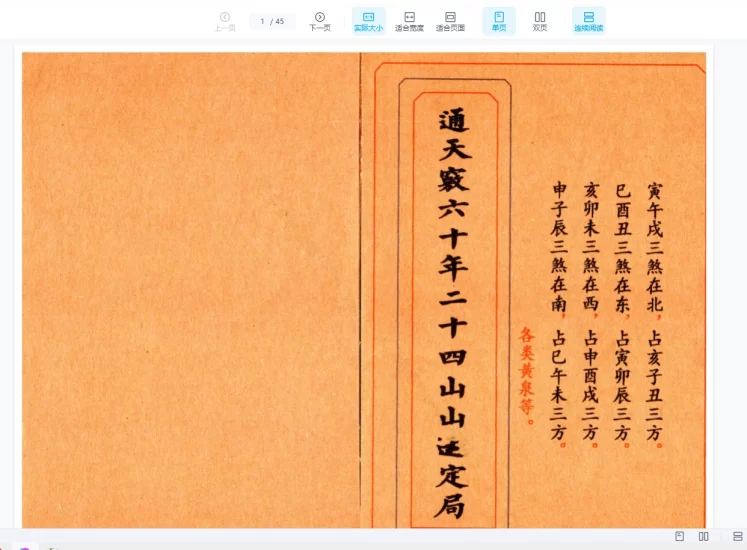 上一页
1 / 45
下一页
实际大小
适合宽度
适合页面
单页
双页
连续阅读
寅午戌三煞在北，占亥子丑三方。
巳酉丑三煞在东，占寅卯辰三方。
亥卯未三煞在西，占申酉戌三方。
申子辰三煞在南，占巳午未三方。
各类黄泉等。
通天竅六十年二十四山山运定局